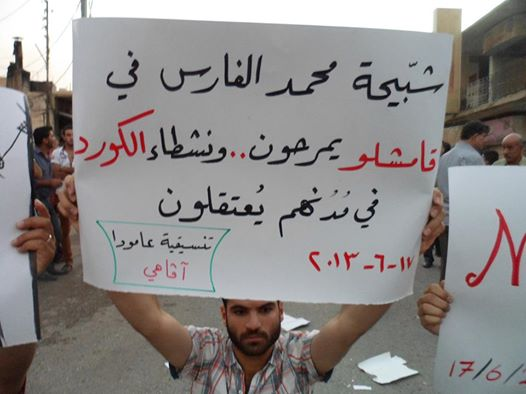 شبّيحة محمد الفارس في
قامشلو يمرحون..ونشطاء الكورد
في مُدنهم يُعتقلون
تنسيقية عامودا
آفاهي
١٧-٦-٢٠١٣
N
17/6/2